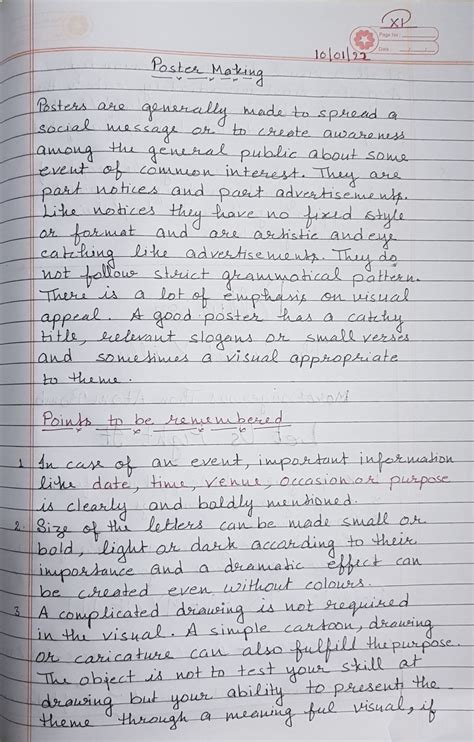 XI
Page No.
Date
10/01/22
Poster Making
Posters are generally made to spread a
social message or to create awareness
among the general public about some
event of common interest. They are
part notices and part advertisements.
Like notices they have no fixed style
or format and are artistic and eye
catching like advertisements. They do
not follow strict grammatical pattern.
There is a lot of emphasis on visual
appeal. A good poster has a catchy
title, relevant slogans or small verses
and sometimes a visual appropriate
to theme.
Points to be remembered
1. In case of an event, important information
like date, time, venue, occasion or purpose
is clearly and boldly mentioned.
2. Size of the letters can be made small or
bold, light or dark according to their
importance and a dramatic effect can
be created even without colours.
3. A complicated drawing is not required
in the visual. A simple cartoon, drawing
or caricature can also fulfill the purpose.
The object is not to test your skill at
drawing but your ability to present the
theme through a meaning ful visual, if